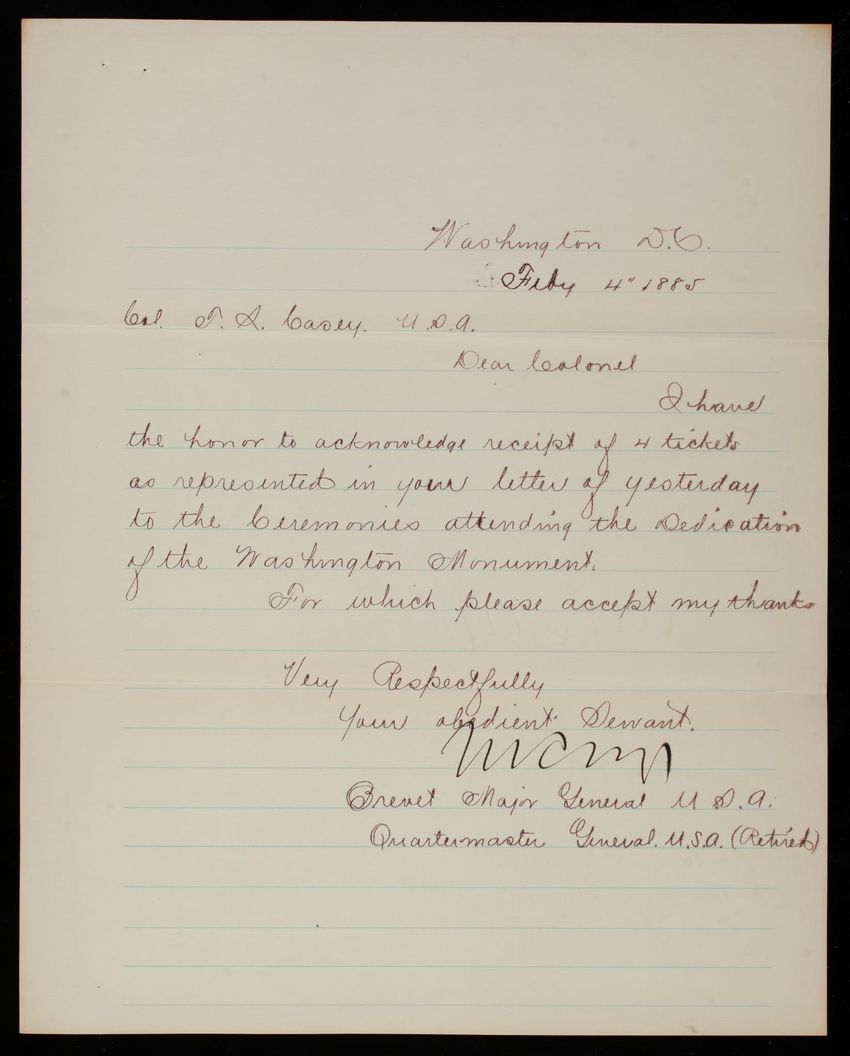 Washington D.C.
Feby 4" 1885
Col. T. L. Casey. U.S.A.
Dear Colonel
I have
the honor to acknowledge receipt of 4 tickets
as represented in your letter of yesterday
to the Ceremonies attending the Dedication
of the Washington Monument.
For which please accept my thanks
Very Respectfully
Your obedient Servant.
Brevet Major General U.S.A.
Quartermaster General. U.S.A. (Retired)